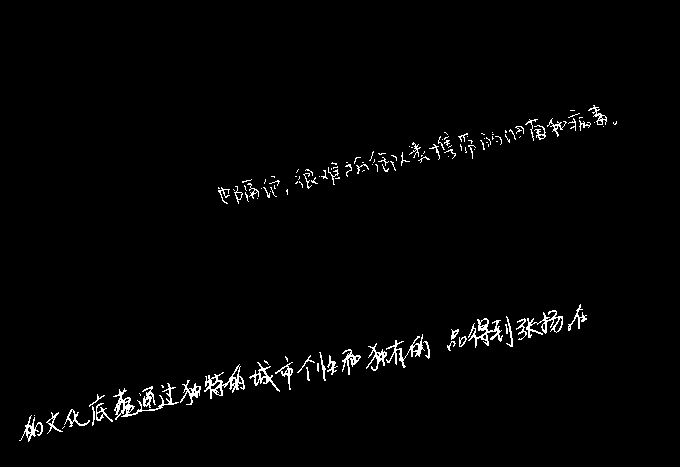 隔德，很难抵御人类携带的细菌和病毒。
的文化底蕴通过独特的城市个性和独有的 品得到张扬，在